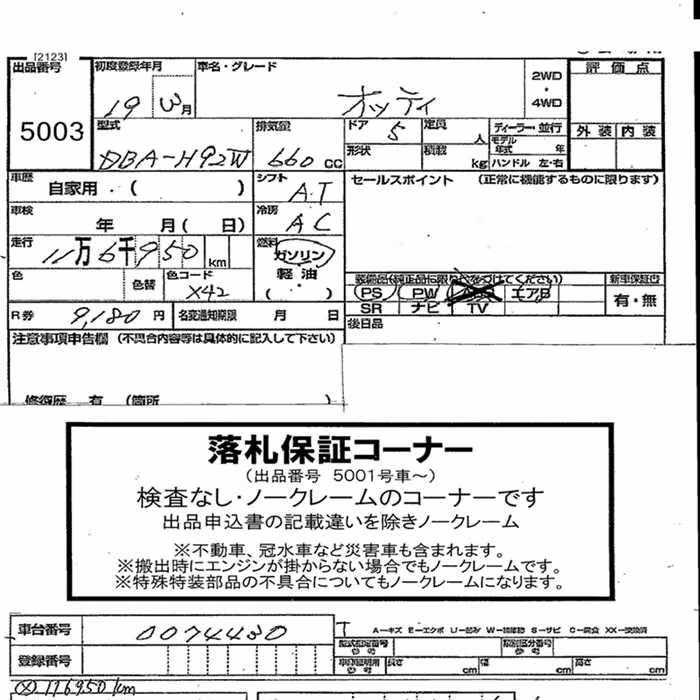 [2123]
出品番号 初度登録年月 車名・グレード 評価点
5003 19 3月 オッティ 2WD・4WD 外装 内装
型式 排気量 ドア 5 定員 人 ディーラー・並行
DBA-H92W 660 CC 形状 積載 kg モデル年式 年 ハンドル 左・右
車歴 自家用・( ) シフト AT セールスポイント (正常に機能するものに限ります)
車検 年 月( 日) 冷房 AC
走行 11万6千950 km 燃料 ガソリン・軽油 ( )
色 色替 色コード X42
装備品(純正品に限り○をつけてください) 新車保証書
PS PW エアB 有・無
SR ナビ TV
R券 9,180 円 名変通知期限 月 日 後日品
注意事項申告欄 (不具合内容等は具体的に記入して下さい)
修復歴 有 (箇所 )
落札保証コーナー
(出品番号 5001号車~)
検査なし・ノークレームのコーナーです
出品申込書の記載違いを除きノークレーム
※不動車、冠水車など災害車も含まれます。
※搬出時にエンジンが掛からない場合でもノークレームです。
※特殊特装部品の不具合についてもノークレームになります。
車台番号 0074430 A-キズ E-エクボ U-凹み W-補修跡 S-サビ C-腐食 XX-交換済
型式指定番号 参考 類別区分番号 参考
登録番号 車庫証明用 参考 長さ cm 幅 cm 高さ cm
116950km